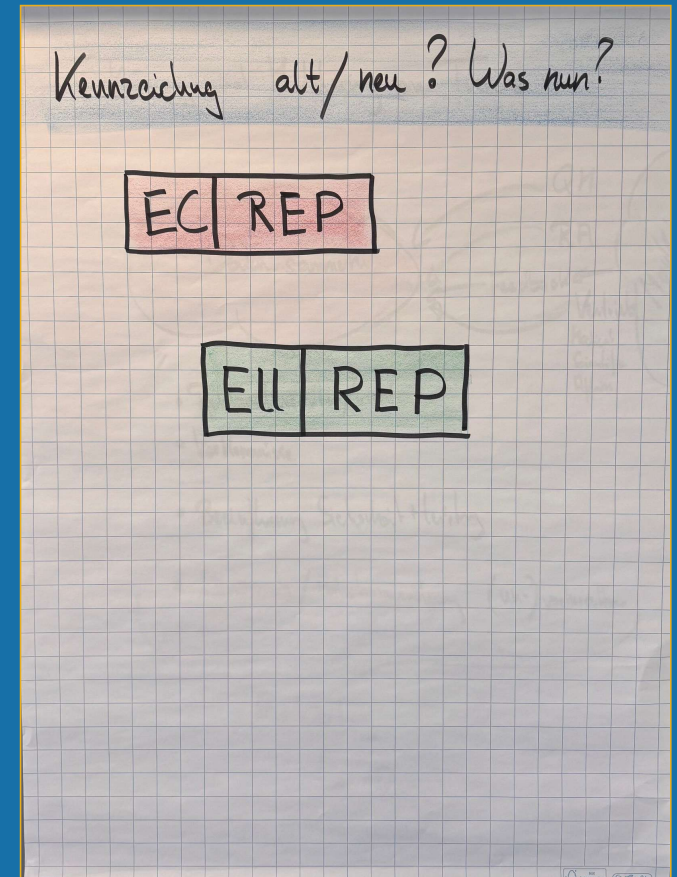 Kennzeichung alt/neu? Was nun?
EC REP
EU REP